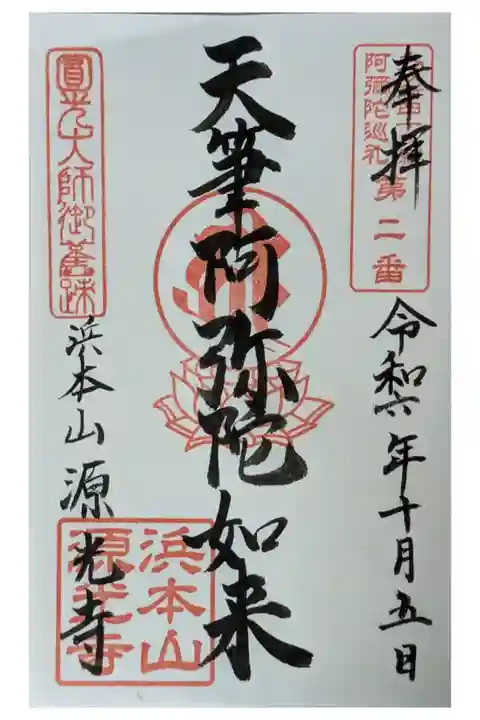 奉拝
阿彌陀巡礼
第二番
令和六年十月五日
天筆阿弥陀如来
圓光大師御舊跡
浜本山 源光寺
浜本山
源光寺